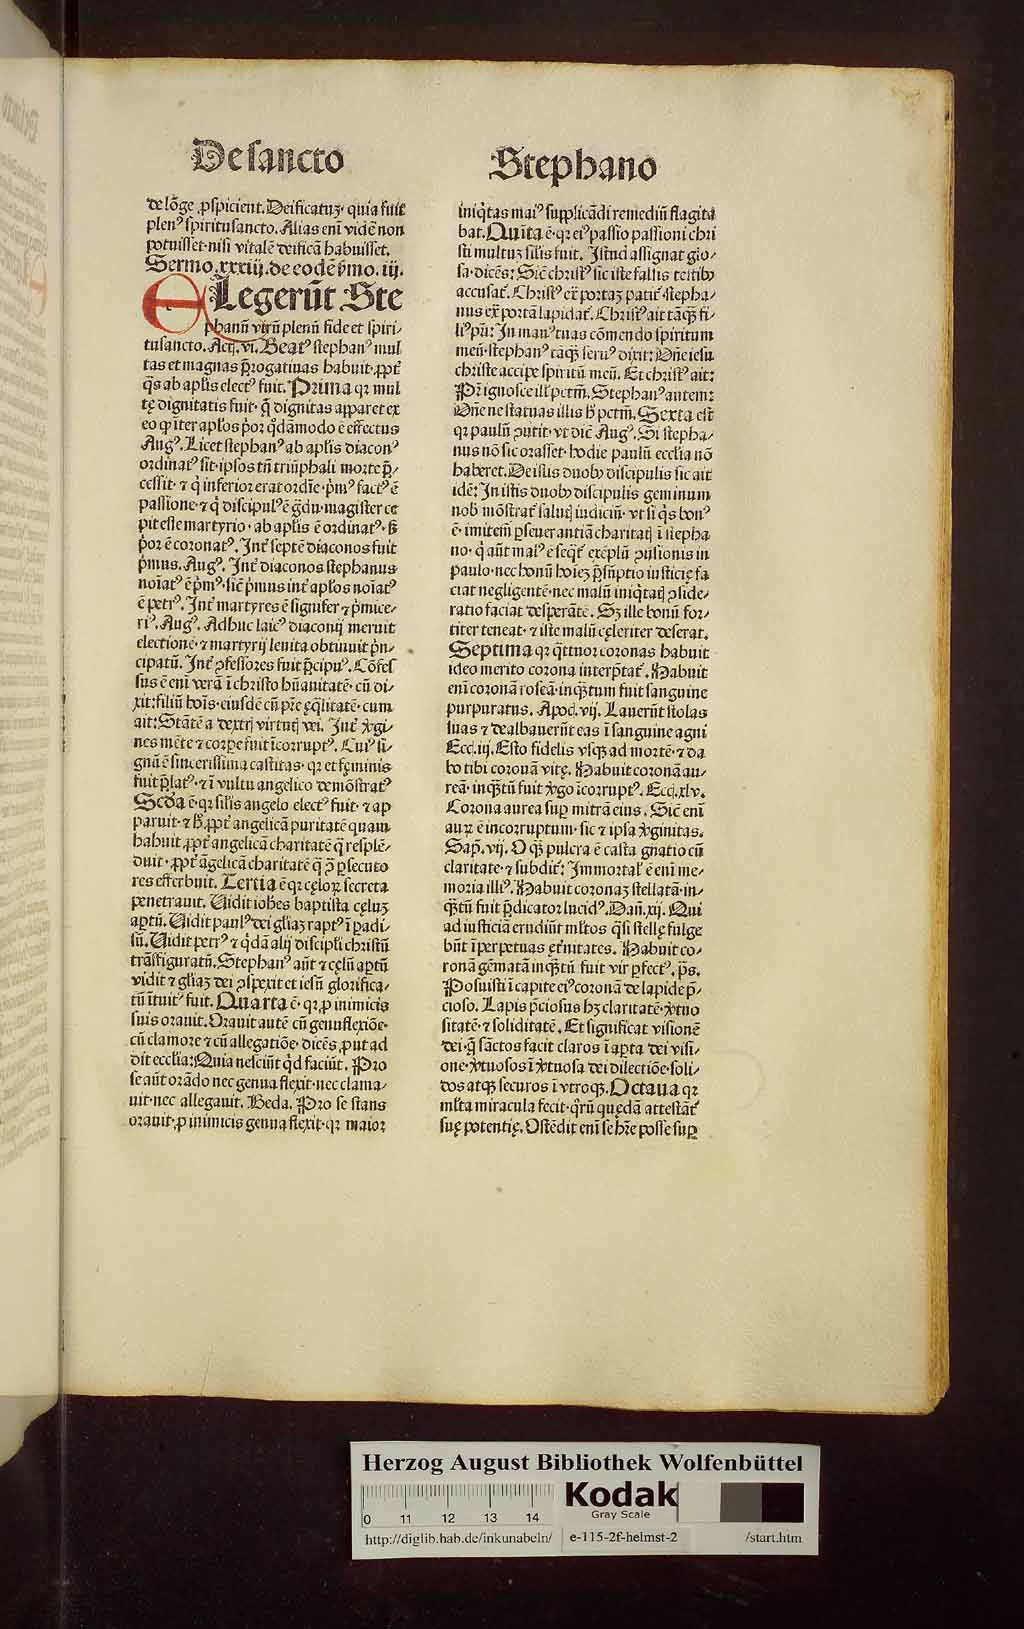 De sancto
Stephano
de lõge ꝓspicient. Deificatuʒ· quia fuit
plenꝰ spiritusancto. Alias eni vidẽ non
potuisset· nisi vitalẽ deificã habuisset.
Sermo. xxxiij. de eodẽ p̃mo. iij.
ELegerũt Ste
phanũ virũ plenũ fide et spiri-
tusancto. Actꝭ. vi. Beatꝰ stephanꝰ mul
tas et magnas p̃rogatinas habuit· ꝓpt̃
q̃s ab aplis electꝰ fuit. Prima qr mul
tę dignitatis fuit· q̃ dignitas apparet ex
eo ꝙ iter aplos p̃or qdãmodo ẽ effectus
Augꝰ. Licet stephanꝰ ab aplis diaconꝰ
ordinatꝰ sit· ipsos tñ triũphali morte p̃-
cessit· ⁊ q̇ inferior erat ordie· p̃mꝰ factꝰ ẽ
passione· ⁊ q̇ discipulꝰ ẽ gᷓdu· magister ce
pit esse martyrio· ab aplis ẽ ordinatꝰ· s̃
p̃or ẽ coronatꝰ. Int̃ septẽ diaconos fuit
p̃mus. Augꝰ. Int̃ diaconos stephanus
noiatꝰ ẽ p̃mꝰ· sic̃ p̃mus int̃ aplos noiatꝰ
ẽ petrꝰ. Int̃ martyres ẽ signifer ⁊ p̃mice-
riꝰ. Augꝰ. Adhuc laicꝰ diaconij meruit
electionẽ· ⁊ martyrij leuita obtinuit p̃n-
cipatũ. Int̃ ꝯfessores fuit p̃cipuꝰ. Cõfes
sus ẽ eni verã i christo hũanitatẽ· cũ di-
xit: filiũ hois· eiusdẽ cũ pr̃e ęq̃litatẽ· cum
ait: Stãtẽ a dextrꝭ virtutꝭ dei. Int̃ ꝟgi-
nes mẽte ⁊ corꝑe fuit icorruptꝰ. Cuiꝰ si-
gnũ ẽ sincerissima castitas· qr et fęminis
fuit p̃latꝰ· ⁊ i vultu angelico demõstratꝰ
Scda ẽ· qr silis angelo electꝰ fuit· ⁊ ap
paruit· ⁊ h̃ ꝓpt̃ angelicã puritatẽ quam
habuit ꝓpt̃ angelicã charitatẽ q̃ resplẽ-
duit· ꝓpt̃ ãgelicã charitatẽ q̃ ꝓ ꝑsecuto
res efferbuit. Tertia ẽ qr cęloꝝ secreta
penetrauit. Uidit iohẽs baptista cęluʒ
aꝑtũ. Uidit paulꝰ dei gliaʒ raptꝰ i ꝑadi-
sũ. Uidit petrꝰ ⁊ q̇dã alij discipli christũ
trãsfiguratũ. Stephanꝰ aũt ⁊ cęlũ aꝑtũ
vidit ⁊ gliaʒ dei ꝯspexit et iesũ glorifica-
tũ ituitꝰ fuit. Quarta ẽ· qr ꝓ inimicis
suis orauit. Orauit autẽ cũ genuflexiõe·
cũ clamore ⁊ cũ allegatiõe· dicẽs ꝓut ad
dit ecclia: Quia nesciũt qd faciũt. Pro
se aũt orãdo nec genua flexit· nec clama-
uit· nec allegauit. Beda. Pro se stans
orauit· ꝓ inimicis genua flexit· qr maior
iniq̇tas maiꝰ supplicãdi remediũ flagita
bat. Quita ẽ· qr eiꝰ passio passioni chri
sti multuʒ silis fuit. Istud assignat glo-
sa· dicẽs: Sic̃ christꝰ sic iste fallis testibꝰ
accusat̃. Christꝰ ex̃ portaʒ patit̃· stepha-
nus ex̃ portã lapidat̃. Christꝰ ait tãꝗ̃ fi-
liꝰ p̃ni: In manꝰ tuas cõmendo spiritum
meũ· stephanꝰ tãꝗ̃ seruꝰ dixit: Dñe iesu
christe accipe spiritũ meũ. Et christꝰ ait:
Pr̃ ignosce illꝭ pctm̃. Stephanꝰ autem:
Dñe ne statuas illis h̃ pctm̃. Sexta est
qr paulũ ꝯutit· vt dic̃ Augꝰ. Si stepha-
nus nõ sic orasset· hodie paulũ ecclia nõ
haberet. De istis duobꝰ discipulis sic ait
idẽ: In istis duobꝰ discipulis geminum
nob̃ mõstrat̃ salutꝭ iudiciũ· vt si q̇s bonꝰ
ẽ· imitem̃ ꝑseuerantiã charitatꝭ i stepha
no· q̇ aũt malꝰ ẽ seq̃t̃ exẽplũ ꝯuersionis in
paulo· nec bonũ hoieʒ p̃sũptio iusticię fa
ciat negligentẽ· nec malũ iniq̇tatꝭ ꝯside-
ratio faciat desperãtẽ. Sʒ ille bonũ for-
titer teneat· ⁊ iste malũ cęleriter deserat.
Septima qr q̃ttuor coronas habuit
ideo merito corona interp̃tat̃. Habuit
eni coronã roseã· inq̃tum fuit sanguine
purpuratus. Apoc̃. vij. Lauerũt stolas
suas ⁊ dealbauerũt eas i sanguine agni
Ecc̃. iij. Esto fidelis vsqꝫ ad mortẽ· ⁊ da
bo tibi coronã vitę. Habuit coronã au-
reã· inq̃tũ fuit ꝟgo icorruptꝰ. Ecc̃. xlv.
Corona aurea suꝑ mitrã eius. Sic̃ eni
auꝝ ẽ incorruptum· sic ⁊ ipsa ꝟginitas.
Sap̃. vij. O ꝗ̃ pulcra ẽ casta gñatio cũ
claritate· ⁊ subdit̃: Immortal̃ ẽ eni me-
moria illiꝰ. Habuit coronaʒ stellatã· in-
q̃tũ fuit p̃dicator lucidꝰ. Dañ. xij. Qui
ad iusticiã erudiũt ml̃tos q̃si stellę fulge
bũt i perpetuas ęt̃nitates. Habuit co-
ronã gẽmatã inq̃tũ fuit vir ꝑfectꝰ. p̃s.
Posuisti i capite eiꝰ coronã de lapide p̃-
cioso. Lapis p̃ciosus hʒ claritatẽ· ꝟtuo
sitatẽ· ⁊ soliditatẽ. Et significat visionẽ
dei· q̃ sãctos facit claros i aꝑta dei visi-
one· ꝟtuosos i ꝟtuosa dei dilectiõe· soli-
dos atqꝫ securos i vtroqꝫ. Octaua qr
ml̃ta miracula fecit· q̃rũ quędã attestãt̃
suę potentię. Ostẽdit eni se hr̃e posse suꝑ
Herzog August Bibliothek Wolfenbüttel
Kodak
Gray Scale
0 11 12 13 14
http://diglib.hab.de/inkunabeln/ e-115-2f-helmst-2 /start.htm